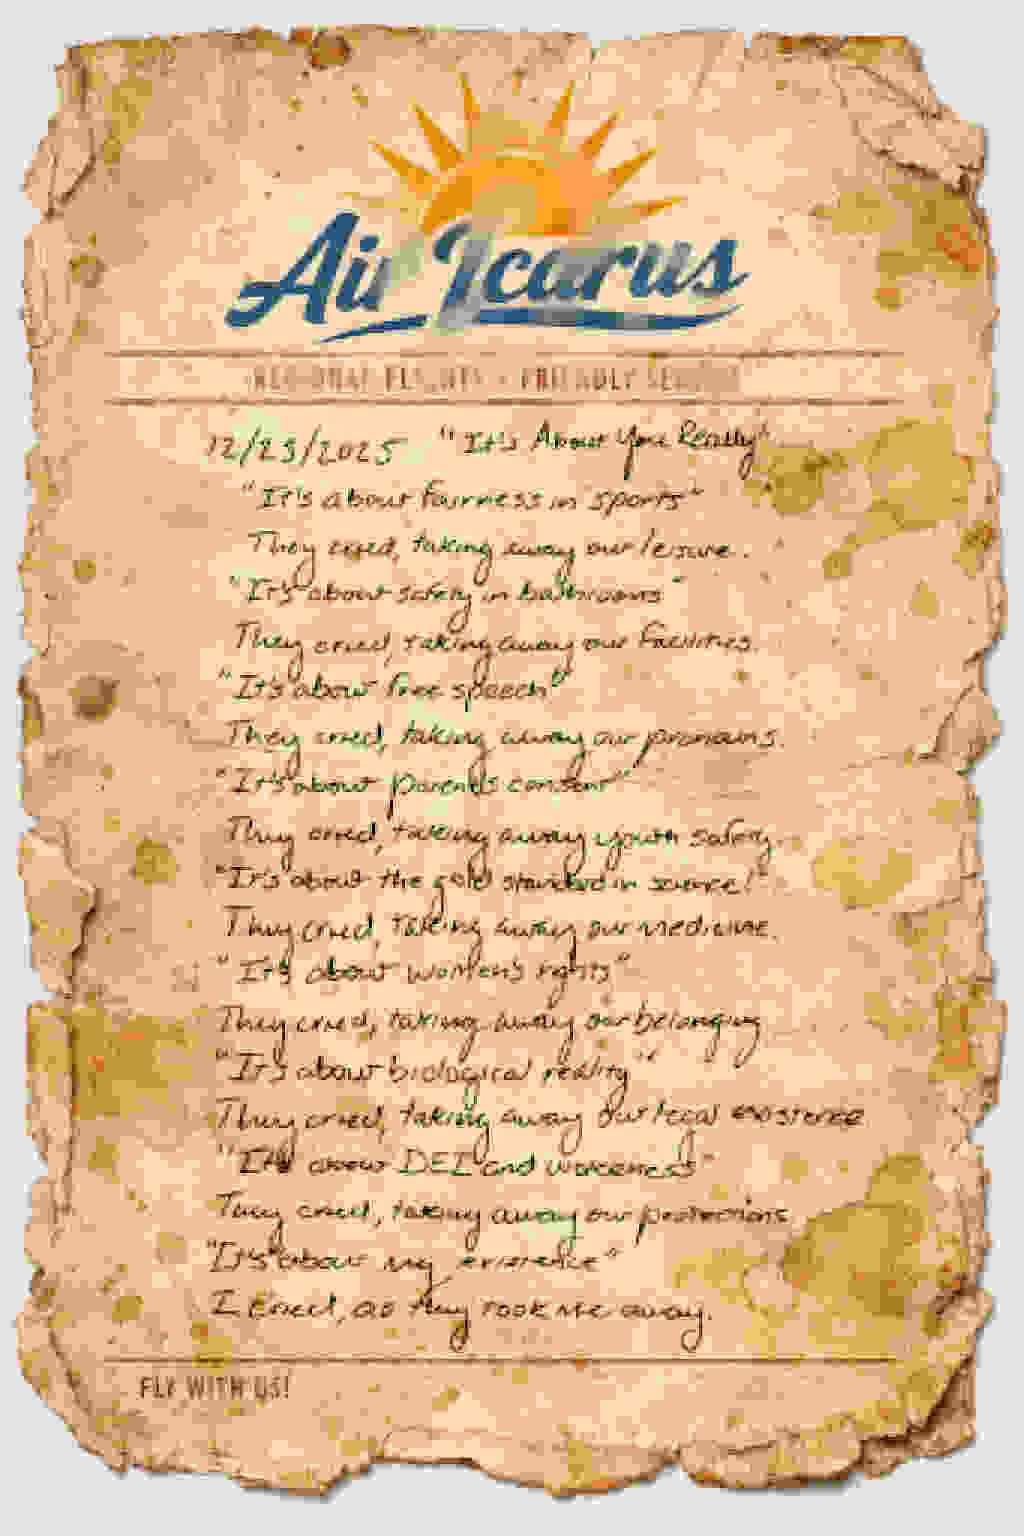 Air Icarus
REGIONAL FLIGHTS - FRIENDLY SERVICE
12/23/2025 "It's About You Really"
"It's about fairness in sports"
They cried, taking away our leisure.
"It's about safety in bathrooms"
They cried, taking away our facilities.
"It's about free speech"
They cried, taking away our pronouns.
"It's about parents consent"
They cried, taking away youth safety.
"It's about the gold standard in science!"
They cried, taking away our medicine.
"It's about women's rights"
They cried, taking away our belonging
"It's about biological reality"
They cried, taking away our legal existence
"It's about DEI and wokeness"
They cried, taking away our protections
"It's about my existence"
I cried, as they took me away.
FLY WITH US!